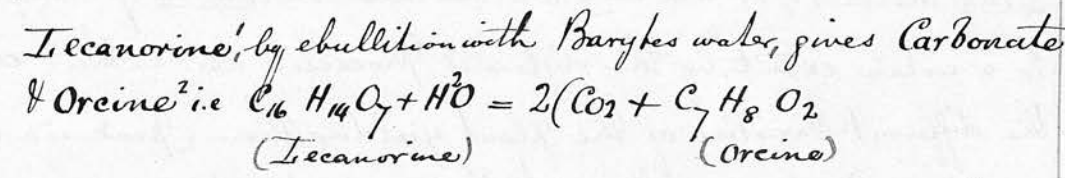 Lecanorine¹, by ebullition with Barytes water, gives Carbonate
& Orcine² i.e C₁₆ H₁₄O₇ + H²O = 2(CO₂ + C₇ H₈ O₂
(Lecanorine) (Orcine)